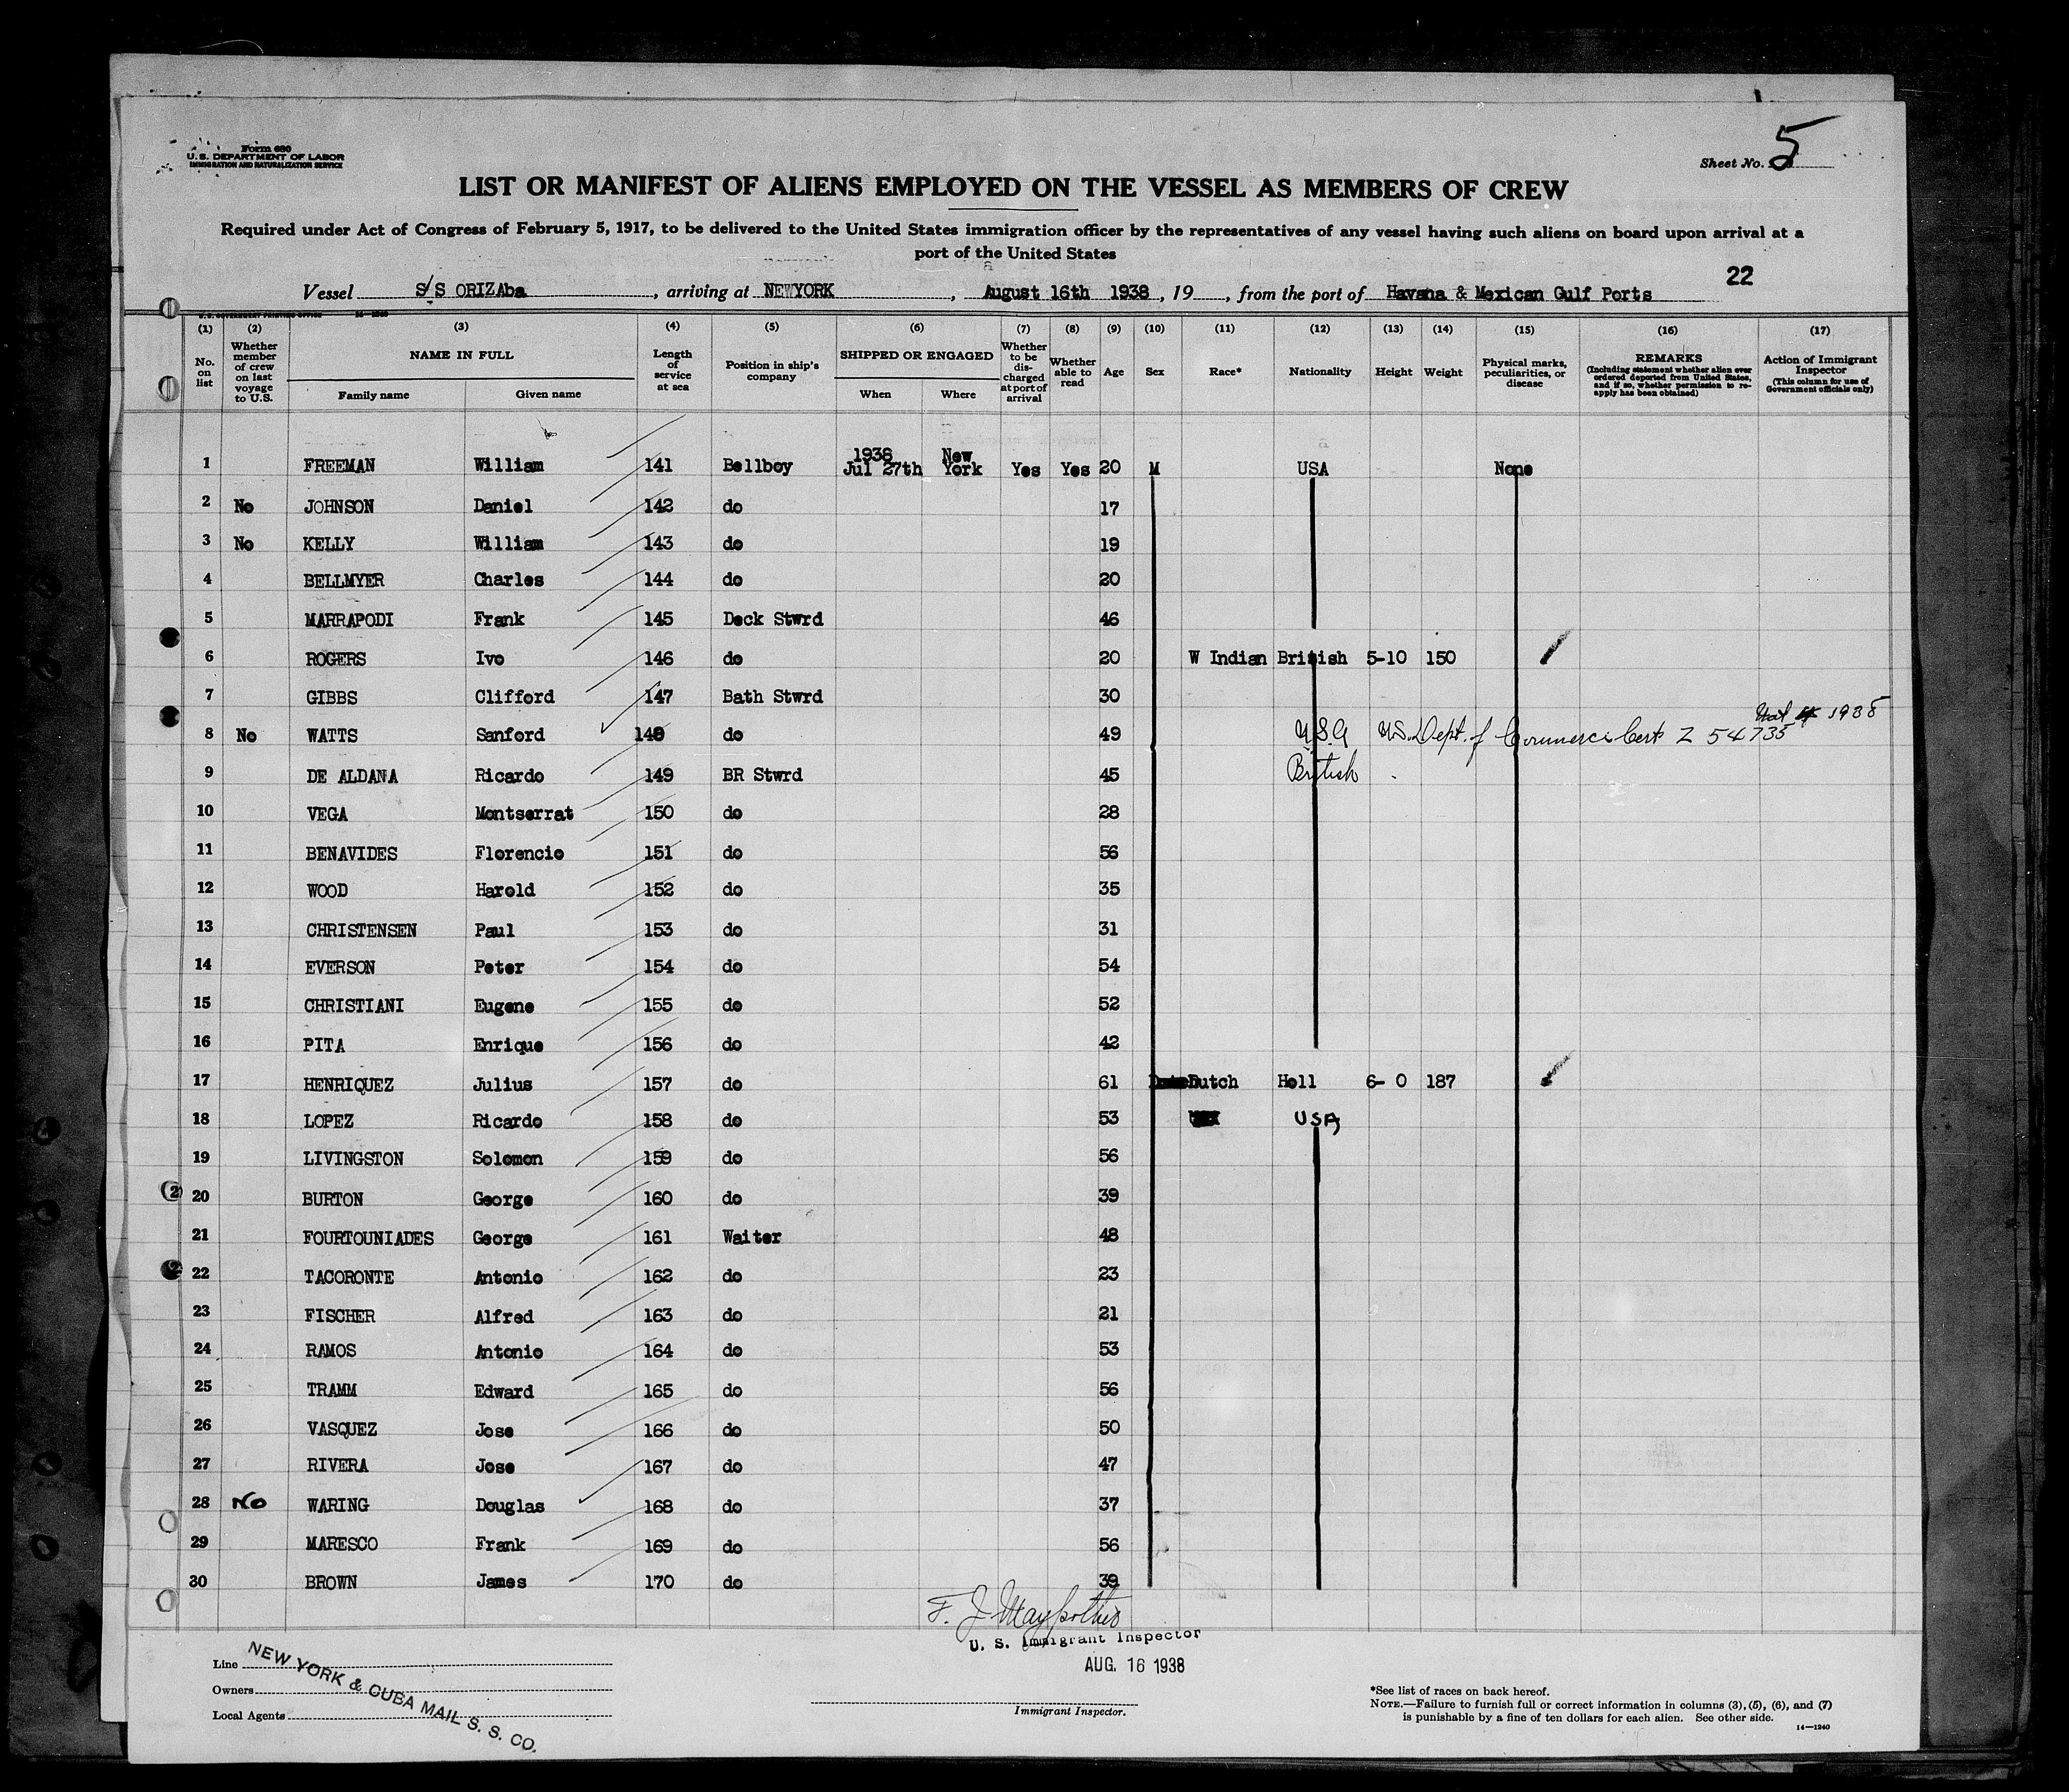 Form 680
U. S. DEPARTMENT OF LABOR
IMMIGRATION AND NATURALIZATION SERVICE
Sheet No. 5
LIST OR MANIFEST OF ALIENS EMPLOYED ON THE VESSEL AS MEMBERS OF CREW
Required under Act of Congress of February 5, 1917, to be delivered to the United States immigration officer by the representatives of any vessel having such aliens on board upon arrival at a
port of the United States
22
Vessel S/S ORIZAba, arriving at NEWYORK, August 16th 1938, 19, from the port of Havana & Mexican Gulf Ports
U. S. GOVERNMENT PRINTING OFFICE
(1) (2) (3) (4) (5) (6) (7) (8) (9) (10) (11) (12) (13) (14) (15) (16) (17)
No. on list
Whether member of crew on last voyage to U.S.
NAME IN FULL
Family name Given name
Length of service at sea
Position in ship's company
SHIPPED OR ENGAGED
When Where
Whether to be discharged at port of arrival
Whether able to read
Age
Sex
Race*
Nationality
Height
Weight
Physical marks, peculiarities, or disease
REMARKS
(Including statement whether alien ever ordered deported from United States, and if so, whether permission to reapply has been obtained)
Action of Immigrant Inspector
(This column for use of Government officials only)
1 FREEMAN William 141 Bellboy 1938 Jul 27th New York Yes Yes 20 M USA None
2 No JOHNSON Daniel 142 do 17
3 No KELLY William 143 do 19
4 BELLMYER Charles 144 do 20
5 MARRAPODI Frank 145 Deck Stwrd 46
6 ROGERS Ivo 146 do 20 W Indian British 5-10 150
7 GIBBS Clifford 147 Bath Stwrd 30
8 No WATTS Sanford 148 do 49 U.S.A U.S. Dept. of Commerce Cert Z 54735 1938
9 DE ALDANA Ricardo 149 BR Stwrd 45 British
10 VEGA Montserrat 150 do 28
11 BENAVIDES Florencio 151 do 56
12 WOOD Harold 152 do 35
13 CHRISTENSEN Paul 153 do 31
14 EVERSON Peter 154 do 54
15 CHRISTIANI Eugene 155 do 52
16 PITA Enrique 156 do 42
17 HENRIQUEZ Julius 157 do 61 Dutch Holl 6- 0 187
18 LOPEZ Ricardo 158 do 53 USA
19 LIVINGSTON Solomon 159 do 56
20 BURTON George 160 do 39
21 FOURTOUNIADES George 161 Waiter 48
22 TACORONTE Antonio 162 do 23
23 FISCHER Alfred 163 do 21
24 RAMOS Antonio 164 do 53
25 TRAMM Edward 165 do 56
26 VASQUEZ Jose 166 do 50
27 RIVERA Jose 167 do 47
28 No WARING Douglas 168 do 37
29 MARESCO Frank 169 do 56
30 BROWN James 170 do 39
F. J.
U. S. Immigrant Inspector
AUG. 16 1938
Immigrant Inspector.
Line
Owners
Local Agents
NEW YORK & CUBA MAIL S. S. CO.
*See list of races on back hereof.
NOTE.—Failure to furnish full or correct information in columns (3), (5), (6), and (7)
is punishable by a fine of ten dollars for each alien. See other side.
14—1240